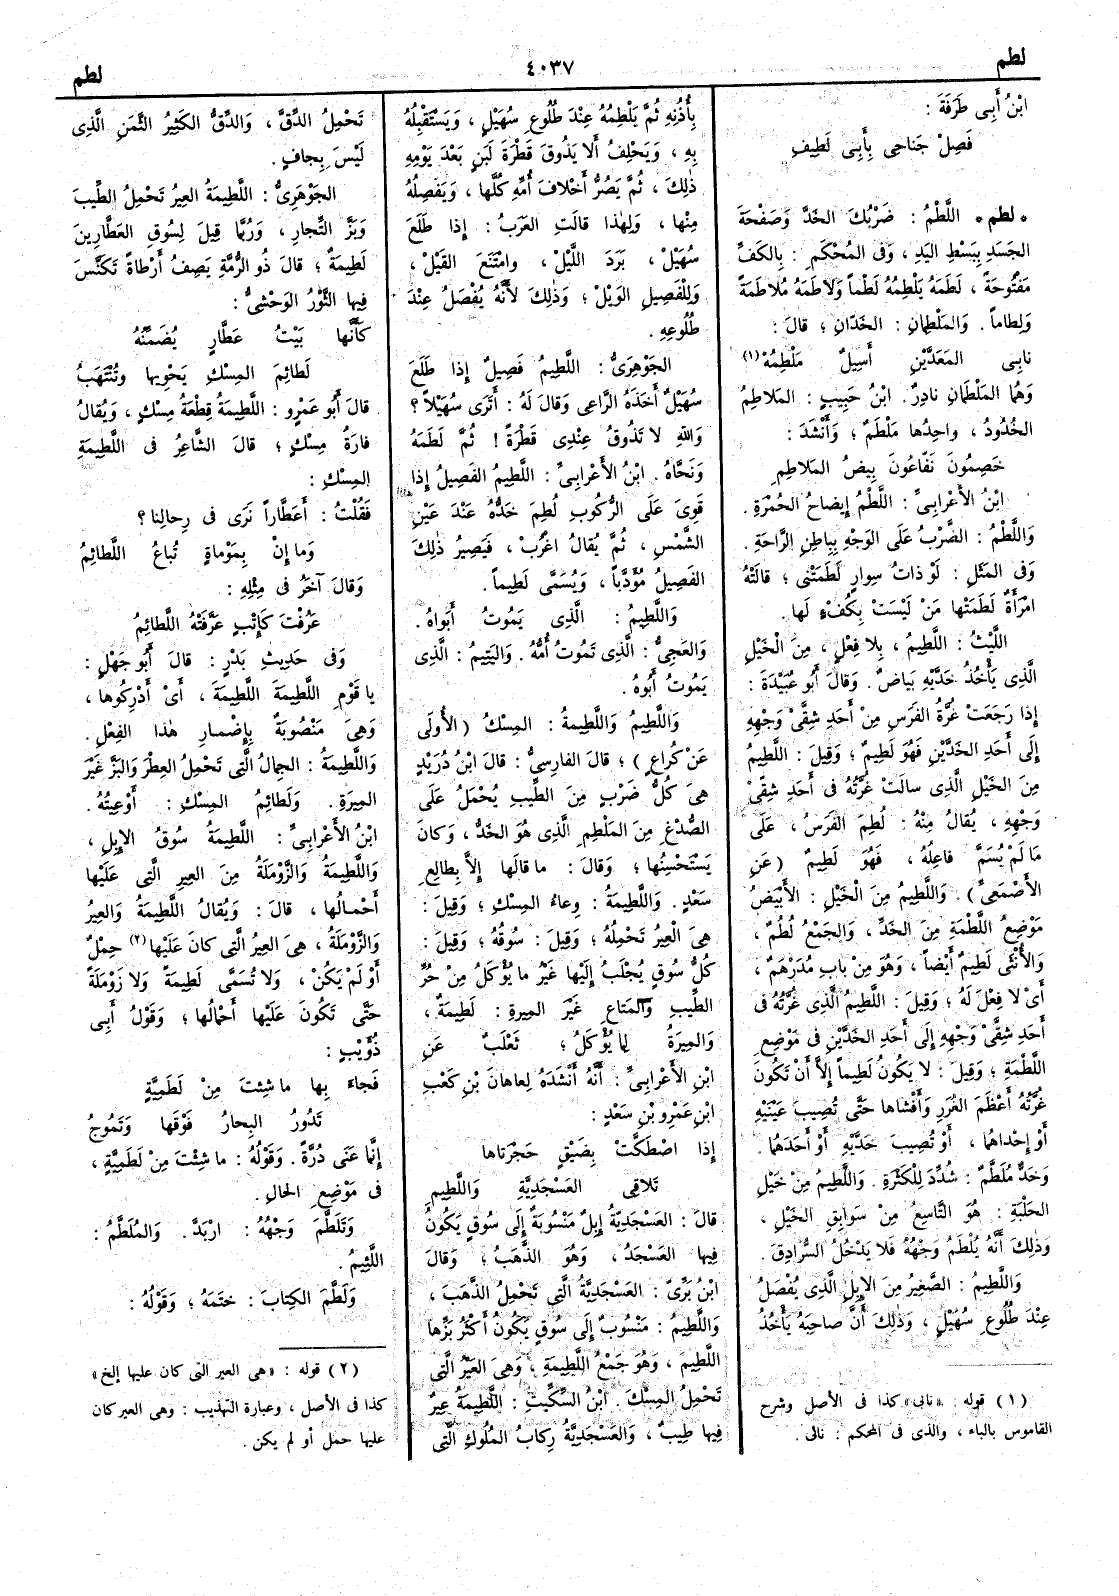 لطم
٤٠٣٧
لطم
ابْنُ أَبِى طَرَفَةَ :
فَصِلْ جَناحِى بِأَبِى لَطِيفِ
* لطم * اللَّطْمُ : ضَرْبُكَ الخَدَّ وَصَفْحَةَ
الجَسَدِ بِبَسْطِ اليَدِ ، وَفى المُحْكَمِ : بِالكَفِّ
مَفْتُوحَةً ، لَطَمَهُ يَلْطِمُهُ لَطْماً وَلَاطَمَهُ مُلَاطَمَةً
وَلِطاماً . وَالمَلْطِمانِ : الخَدّانِ ؛ قالَ :
نابِى المَعَدَّيْنِ أَسِيلٌ مَلْطِمُهْ (١)
وَهُما المَلْطَمانِ نادِرٌ. ابْنُ حَبِيبٍ : المَلاطِمُ
الخُدُودُ ، واحِدُها مَلْطَمٌ ؛ وَأَنْشَدَ :
خَصِمُونَ نَفّاعُونَ بِيضُ المَلاطِمِ
ابْنُ الأَعْرابِىِّ : اللَّطْمُ إِيضاحُ الحُمْرَةِ .
وَاللَّطْمُ : الضَّرْبُ عَلَى الوَجْهِ بِباطِنِ الرَّاحَةِ .
وَفى المَثَلِ : لَوْ ذاتُ سِوارٍ لَطَمَتْنى ؛ قالَتْهُ
امْرَأَةٌ لَطَمَتْها مَنْ لَيْسَتْ بِكُفْءٍ لَها .
اللَّيْثُ : اللَّطِيمُ ، بِلا فِعْلٍ ، مِنَ الْخَيْلِ
الَّذِى يَأْخُذُ خَدَّيْهِ بَياضٌ. وَقالَ أَبو عُبَيْدَةَ :
إِذا رَجَعَتْ غُرَّةُ الفَرَسِ مِنْ أَحَدِ شِقَّىْ وَجْهِهِ
إِلَى أَحَدِ الخَدَّيْنِ فَهُوَ لَطِيمٌ ؛ وَقِيلَ : اللَّطِيمُ
مِنَ الخَيْلِ الَّذِى سالَتْ غُرَّتُهُ فى أَحَدِ شِقَّىْ
وَجْهِهِ ، يُقالُ مِنْهُ : لُطِمَ الفَرَسُ ، عَلَى
مَا لَمْ يُسَمَّ فاعِلُهُ ، فَهُوَ لَطِيمٌ (عَنِ
الأَصْمَعِىِّ ) . وَاللَّطِيمُ مِنَ الْخَيْلِ : الأَبْيَضُ
مَوْضِعُ اللَّطْمَةِ مِنَ الخَدِّ ، وَالجَمْعُ لُطُمٌ ،
وَالأُنْثَى لَطِيمٌ أَيْضاً ، وَهُوَ مِنْ بابِ مُدَرْهَمٍ ،
أَىْ لا فِعْلَ لَهُ ؛ وَقِيلَ : اللَّطِيمُ الَّذِى غُرَّتُهُ فى
أَحَدِ شِقَّىْ وَجْهِهِ إِلَى أَحَدِ الخَدَّيْنِ فى مَوْضِعِ
اللَّطْمَةِ ؛ وَقِيلَ : لا يَكُونُ لَطِيماً إِلَّا أَنْ تَكُونَ
غُرَّتُهُ أَعْظَمَ الغُرَرِ وَأَفْشاها حَتَّى تُصِيبَ عَيْنَيْهِ
أَوْ إِحْداهُما ، أَوْ تُصِيبَ خَدَّيْهِ أَوْ أَحَدَهُما .
وَخَدٌّ مُلَطَّمٌ : شُدِّدَ لِلْكَثْرَةِ . وَاللَّطِيمُ مِنْ خَيْلِ
الحَلْبَةِ : هُوَ التَّاسِعُ مِنْ سَوابِقِ الخَيْلِ ،
وَذلِكَ أَنَّهُ يُلْطَمُ وَجْهُهُ فَلا يَدْخُلُ السُّرادِقَ .
وَاللَّطِيمُ : الصَّغِيرُ مِنَ الإِبِلِ الَّذِى يُفْصَلُ
عِنْدَ طُلُوعِ سُهَيْلٍ ، وَذلِكَ أَنَّ صاحِبَهُ يَأْخُذُ
(١) قوله : «نابى» كذا فى الأصل وشرح
القاموس بالباء ، والذى فى المحكم : نائى .
بِأُذُنِهِ ثُمَّ يَلْطِمُهُ عِنْدَ طُلُوعِ سُهَيْلٍ ، وَيَسْتَقْبِلُهُ
بِهِ ، وَيَحْلِفُ أَلَا يَذُوقَ قَطْرَةَ لَبَنٍ بَعْدَ يَوْمِهِ
ذلِكَ ، ثُمَّ يَصُرُّ أَخْلافَ أُمِّهِ كُلَّها ، وَيَفْصِلُهُ
مِنْها ، وَلِهذا قالَتِ العَرَبُ : إِذا طَلَعَ
سُهَيْلْ ، بَرَدَ اللَّيْلْ ، وامْتَنَعَ القَيْلْ ،
وَلِلْفَصِيلِ الوَيْلْ ؛ وَذلِكَ لأَنَّهُ يُفْصَلُ عِنْدَ
طُلُوعِهِ .
الجَوْهَرِىُّ : اللَّطِيمُ فَصِيلٌ إِذا طَلَعَ
سُهَيْلٌ أَخَذَهُ الرَّاعِى وَقالَ لَهُ : أَتَرَى سُهَيْلاً ؟
وَاللهِ لا تَذُوقُ عِنْدِى قَطْرَةً ! ثُمَّ لَطَمَهُ
وَنَحَّاهُ . ابْنُ الأَعْرابِىِّ : اللَّطِيمُ الفَصِيلُ إِذا
قَوِىَ عَلَى الرُّكُوبِ لُطِمَ خَدُّهُ عِنْدَ عَيْنِ
الشَّمْسِ ، ثُمَّ يُقالُ اغْرُبْ ، فَيَصِيرُ ذلِكَ
الفَصِيلُ مُؤَدَّباً ، وَيُسَمَّى لَطِيماً .
وَاللَّطِيمُ : الَّذِى يَمُوتُ أَبَواهُ .
وَالعَجِىُّ : الَّذِى تَمُوتُ أُمُّهُ . وَاليَتِيمُ : الَّذِى
يَمُوتُ أَبُوهُ .
وَاللَّطِيمُ وَاللَّطِيمَةُ : المِسْكُ ( الأُولَى
عَنْ كُراعٍ ) ؛ قالَ الفارِسِىُّ : قالَ ابْنُ دُرَيْدٍ
هِىَ كُلُّ ضَرْبٍ مِنَ الطِّيبِ يُحْمَلُ عَلَى
الصُّدْغِ مِنَ المَلْطِمِ الَّذِى هُوَ الخَدُّ ، وَكانَ
يَسْتَحْسِنُها ؛ وَقالَ : ما قالَها إِلاَّ بِطالِعِ
سَعْدٍ . وَاللَّطِيمَةُ : وِعاءُ المِسْكِ ؛ وَقِيلَ :
هِىَ العِيرُ تَحْمِلُهُ ؛ وَقِيلَ : سُوقُهُ ؛ وَقِيلَ :
كُلُّ سُوقٍ يُجْلَبُ إِلَيْها غَيْرُ ما يُؤْكَلُ مِنْ حُرِّ
الطِّيبِ وَالمَتاعِ غَيْرَ المِيرَةِ : لَطِيمَةٌ ،
وَالمِيرَةُ لِما يُؤْكَلُ ؛ ثَعْلَبٌ عَنِ
ابْنِ الأَعْرابِىِّ : أَنَّهُ أَنْشَدَهُ لِعاهانَ بْنِ كَعْبِ
ابْنِ عَمْرِو بْنِ سَعْدٍ :
إِذا اصْطَكَّتْ بِضَيْقٍ حَجْرَتاها
تَلاقِى العَسْجَدِيَّةِ وَاللَّطِيمِ
قالَ : العَسْجَدِيَّةُ إِبِلٌ مَنْسُوبَةٌ إِلَى سُوقٍ يَكُونُ
فِيها العَسْجَدُ ، وَهُوَ الذَّهَبُ ؛ وَقالَ
ابْنُ بَرِّىّ : العَسْجَدِيَّةُ الَّتِى تَحْمِلُ الذَّهَبَ ،
وَاللَّطِيمُ : مَنْسُوبٌ إِلَى سُوقٍ يَكُونُ أَكْثَرُ بَزِّها
اللَّطِيمَ ، وَهُوَ جَمْعُ اللَّطِيمَةِ ، وَهِىَ العِيرُ الَّتِى
تَحْمِلُ المِسْكَ . ابْنُ السِّكِّيتِ : اللَّطِيمَةُ عِيرٌ
فِيها طِيبٌ ، وَالعَسْجَدِيَّةُ رِكابُ المُلُوكِ الَّتِى
تَحْمِلُ الدِّقَّ ، وَالدِّقُّ الكَثِيرُ الثَّمَنِ الَّذِى
لَيْسَ بِجافٍ .
الجَوْهَرِىُّ : اللَّطِيمَةُ العِيرُ تَحْمِلُ الطِّيبَ
وَبَزَّ التِّجارِ ، وَرُبَّما قِيلَ لِسُوقِ العَطَّارِينَ
لَطِيمَةٌ ؛ قالَ ذُو الرُّمَّةِ يَصِفُ أَرْطاةً تَكَنَّسَ
فِيها الثَّوْرُ الوَحْشِىُّ :
كَأَنَّها بَيْتُ عَطَّارٍ يُضَمَّنُهُ
لَطائِمَ المِسْكِ يَحْوِيها وتُنْتَهَبُ
قالَ أَبُو عَمْرٍو : اللَّطِيمَةُ قِطْعَةُ مِسْكٍ ، وَيُقالُ
فارَةُ مِسْكٍ ؛ قالَ الشَّاعِرُ فى اللَّطِيمَةِ
المِسْكِ :
فَقُلْتُ : أَعَطَّاراً نَرَى فى رِحالِنا ؟
وَما إِنْ بِمَوْماةٍ تُباعُ اللَّطائِمُ
وَقالَ آخَرُ فى مِثْلِهِ :
عُرِفْتَ كَإِتْبٍ عَرَّفَتْهُ اللَّطائِمُ
وَفى حَدِيثِ بَدْرٍ : قالَ أَبُو جَهْلٍ :
يا قَوْمِ اللَّطِيمَةَ اللَّطِيمَةَ ، أَىْ أَدْرِكُوها ،
وَهِىَ مَنْصُوبَةٌ بِإِضْمارِ هذا الفِعْلِ .
وَاللَّطِيمَةُ : الجِمالُ الَّتى تَحْمِلُ العِطْرَ وَالبَزَّ غَيْرَ
المِيرَةِ . وَلَطائِمُ المِسْكِ : أَوْعِيَتُهُ .
ابْنُ الأَعْرابِىِّ : اللَّطِيمَةُ سُوقُ الإِبِلِ ،
وَاللَّطِيمَةُ وَالزَّوْمَلَةُ مِنَ العِيرِ الَّتى عَلَيْها
أَحْمالُها ، قالَ : وَيُقالُ اللَّطِيمَةُ وَالعِيرُ
وَالزَّوْمَلَةُ ، هِىَ العِيرُ الَّتى كانَ عَلَيْها (٢) حِمْلٌ
أَوْ لَمْ يَكُنْ ، وَلا تُسَمَّى لَطِيمَةً وَلا زَوْمَلَةً
حَتَّى تَكُونَ عَلَيْها أَحْمالُها ؛ وَقَوْلُ أَبِى
ذُؤَيْبٍ :
فَجاءَ بِها ما شِئتَ مِنْ لَطَمِيَّةٍ
تَدُورُ البِحارُ فَوْقَها وَتَمُوجُ
إِنَّما عَنَى دُرَّةً . وَقَوْلُهُ : ما شِئْتَ مِنْ لَطَمِيَّةٍ ،
فى مَوْضِعِ الحالِ .
وَتَلَطَّمَ وَجْهُهُ : ارْبَدَّ . وَالمُلَطَّمُ :
اللَّئِيمُ .
وَلَطَّمَ الكِتابَ : ختَمَهُ ؛ وَقَوْلُهُ :
(٢) قوله : «هى العير التى كان عليها إلخ»
كذا فى الأصل ، وعبارة التهذيب : وهى العير كان
عليها حمل أو لم يكن .